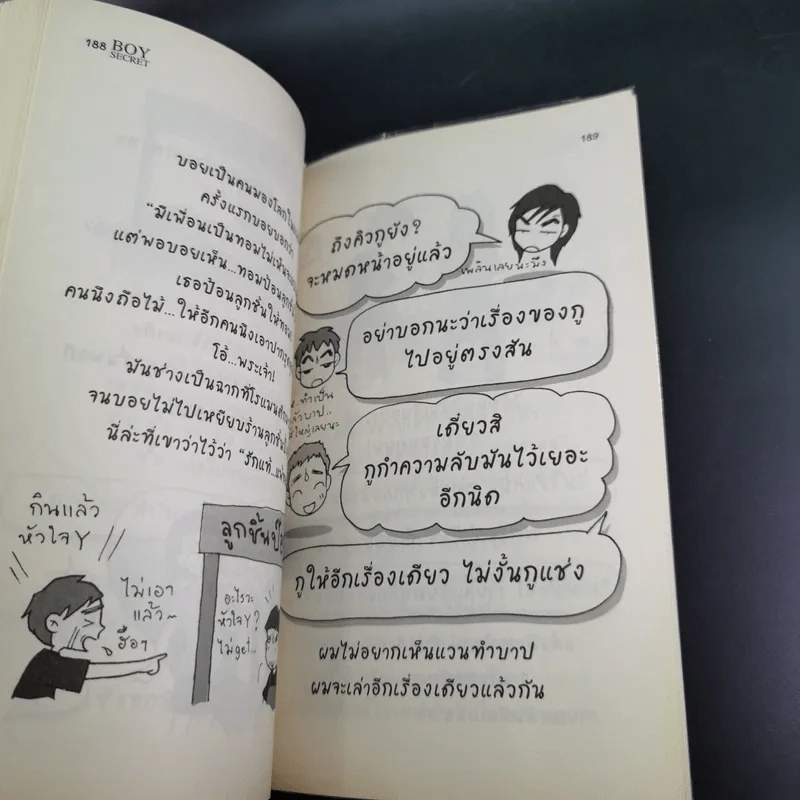 188 BOY
SECRET
บอยเป็นคนมองโลก
ครั้งแรกบอยบอกว่า
"มีเพื่อนเป็นทอมไม่เห็น
แต่พอบอยเห็น...ทอมป้อนลูกชิ้น
เธอป้อนลูกชิ้นให้ทอม
คนนึงถือไม้...ให้อีกคนนึงเอาปาก
โอ้...พระเจ้า!
มันช่างเป็นฉากที่โรแมนติก
จนบอยไม่ไปเหยียบร้านลูกชิ้น
นี่ล่ะที่เขาว่าไว้ว่า "รักแท้...
กินแล้ว
หัวใจ Y
ไม่เอา
แล้ว~
ฮือๆ
ลูกชิ้นปิ้ง
อะไรวะ
หัวใจ Y?
ไม่ get...
189
ถึงคิวกูยัง?
จะหมดหน้าอยู่แล้ว
เพลินเลยนะมึง
อย่าบอกนะว่าเรื่องของกู
ไปอยู่ตรงสัน
ทำเป็น
กลัวบาป..
ใหญ่เลยนะ
เดี๋ยวสิ
กูกำความลับมันไว้เยอะ
อีกนิด
กูให้อีกเรื่องเดียว ไม่งั้นกูแช่ง
ผมไม่อยากเห็นแวนทำบาป
ผมจะเล่าอีกเรื่องเดียวแล้วกัน